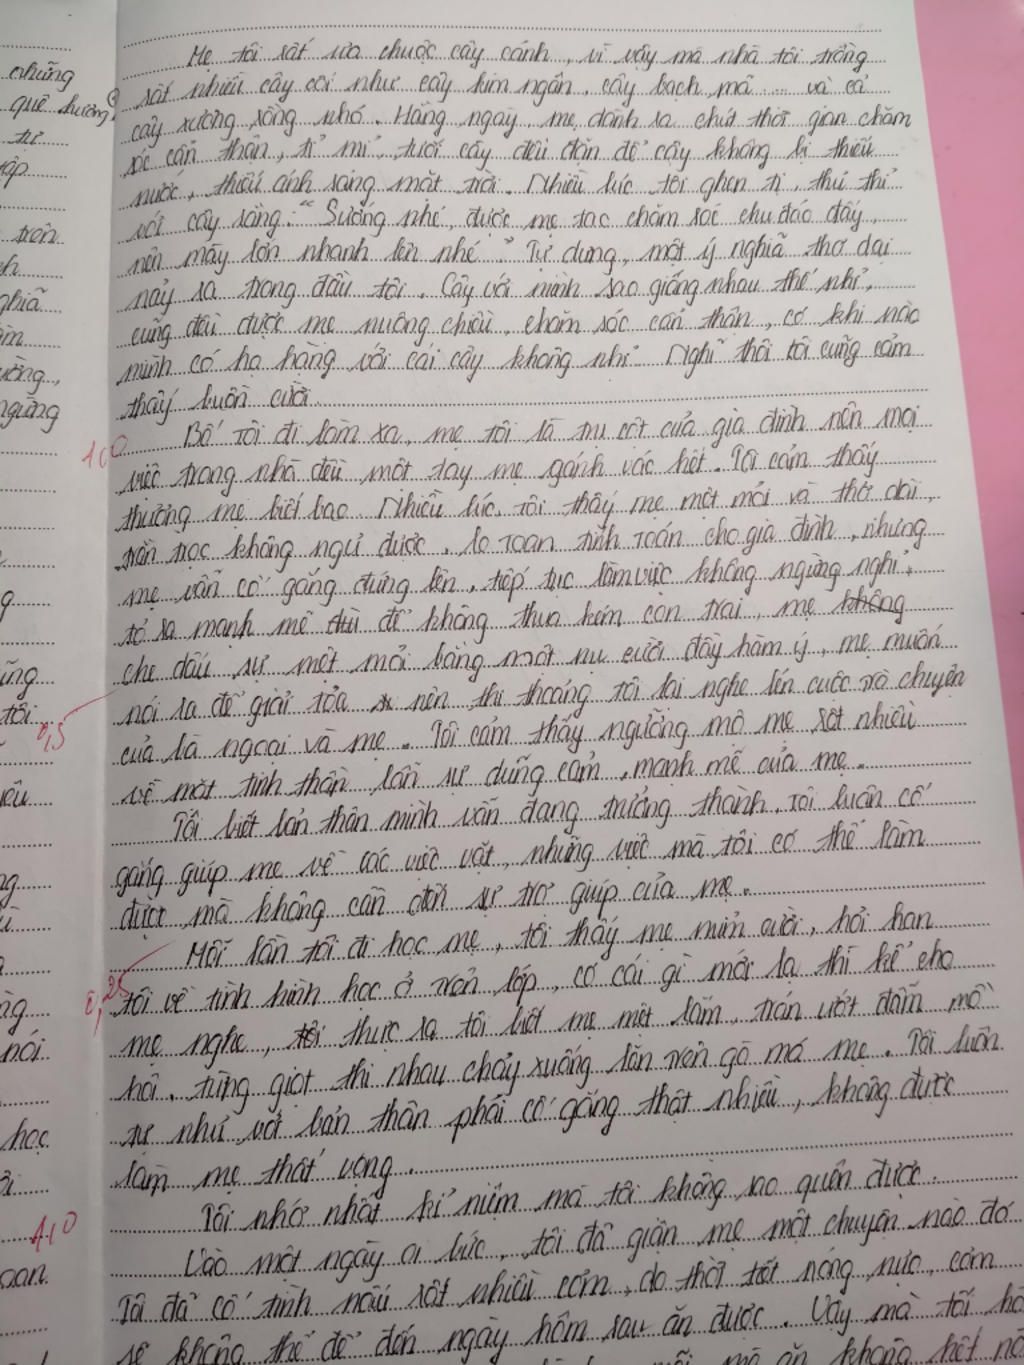 những
quê hương
tư
tập
trên
nghĩa
ường,
ngừng
Mẹ tôi rất ưa chuộc cây cảnh, vì vậy mà nhà tôi trồng
rất nhiều cây cối như cây kim ngân, cây bạch mã ... và cả
cây xương rồng nhỏ. Hằng ngày, mẹ dành ra chút thời gian chăm
sóc cẩn thận, tỉ mỉ, tưới cây đều đặn để cây không bị thiếu
nước, thiếu ánh sáng mặt trời. Nhiều lúc tôi ghen tị, thủ thỉ
với cây rằng: " Sướng nhé, được mẹ tao chăm sóc chu đáo đấy,
nên mày lớn nhanh lên nhé ". Tự dưng, một ý nghĩ thơ dại
nảy ra trong đầu tôi. Cây với mình sao giống nhau thế nhỉ,
cũng đều được mẹ nuông chiều, chăm sóc cẩn thận, có khi nào
mình có họ hàng với cái cây không nhỉ. Nghĩ thôi tôi cũng cảm
thấy buồn cười.
1,0
Bố tôi đi làm xa, mẹ tôi là trụ cột của gia đình nên mọi
việc trong nhà đều một tay mẹ gánh vác hết. Tôi cảm thấy
thương mẹ biết bao. Nhiều lúc, tôi thấy mẹ mệt mỏi và thở dài,
trằn trọc không ngủ được, lo toan tính toán cho gia đình, nhưng
mẹ vẫn cố gắng đứng lên, tiếp tục làm việc không ngừng nghỉ,
tỏ ra mạnh mẽ để không thua kém con trai, mẹ không
che dấu sự mệt mỏi bằng một nụ cười đầy hàm ý, mẹ muốn
nói ra để giải tỏa nên thi thoảng tôi lại nghe lén cuộc trò chuyện
của bà ngoại và mẹ. Tôi cảm thấy ngưỡng mộ mẹ rất nhiều
về mặt tinh thần lẫn sự dũng cảm, mạnh mẽ của mẹ.
0,5
Tôi biết bản thân mình vẫn đang trưởng thành, tôi luôn cố
gắng giúp mẹ về các việc vặt, những việc mà tôi có thể làm
được mà không cần đến sự trợ giúp của mẹ.
Mỗi lần tôi đi học mẹ, tôi thấy mẹ mỉm cười, hỏi han
0,25
tôi về tình hình học ở trên lớp, có cái gì mới lạ thì kể cho
mẹ nghe, thực ra tôi biết mẹ mệt lắm, trán ướt đẫm mồ
hôi, từng giọt thi nhau chảy xuống lăn trên gò má mẹ. Tôi luôn
tự nhủ với bản thân phải cố gắng thật nhiều, không được
làm mẹ thất vọng.
Tôi nhớ nhất kỉ niệm mà tôi không sao quên được.
Vào một ngày oi bức, tôi đã giận mẹ một chuyện nào đó.
Tôi đã cố tình nấu rất nhiều cơm, do thời tiết nóng nực, cơm
sẽ không thể để đến ngày hôm sau ăn được. Vậy mà tối
tôi
nói
học
1,0